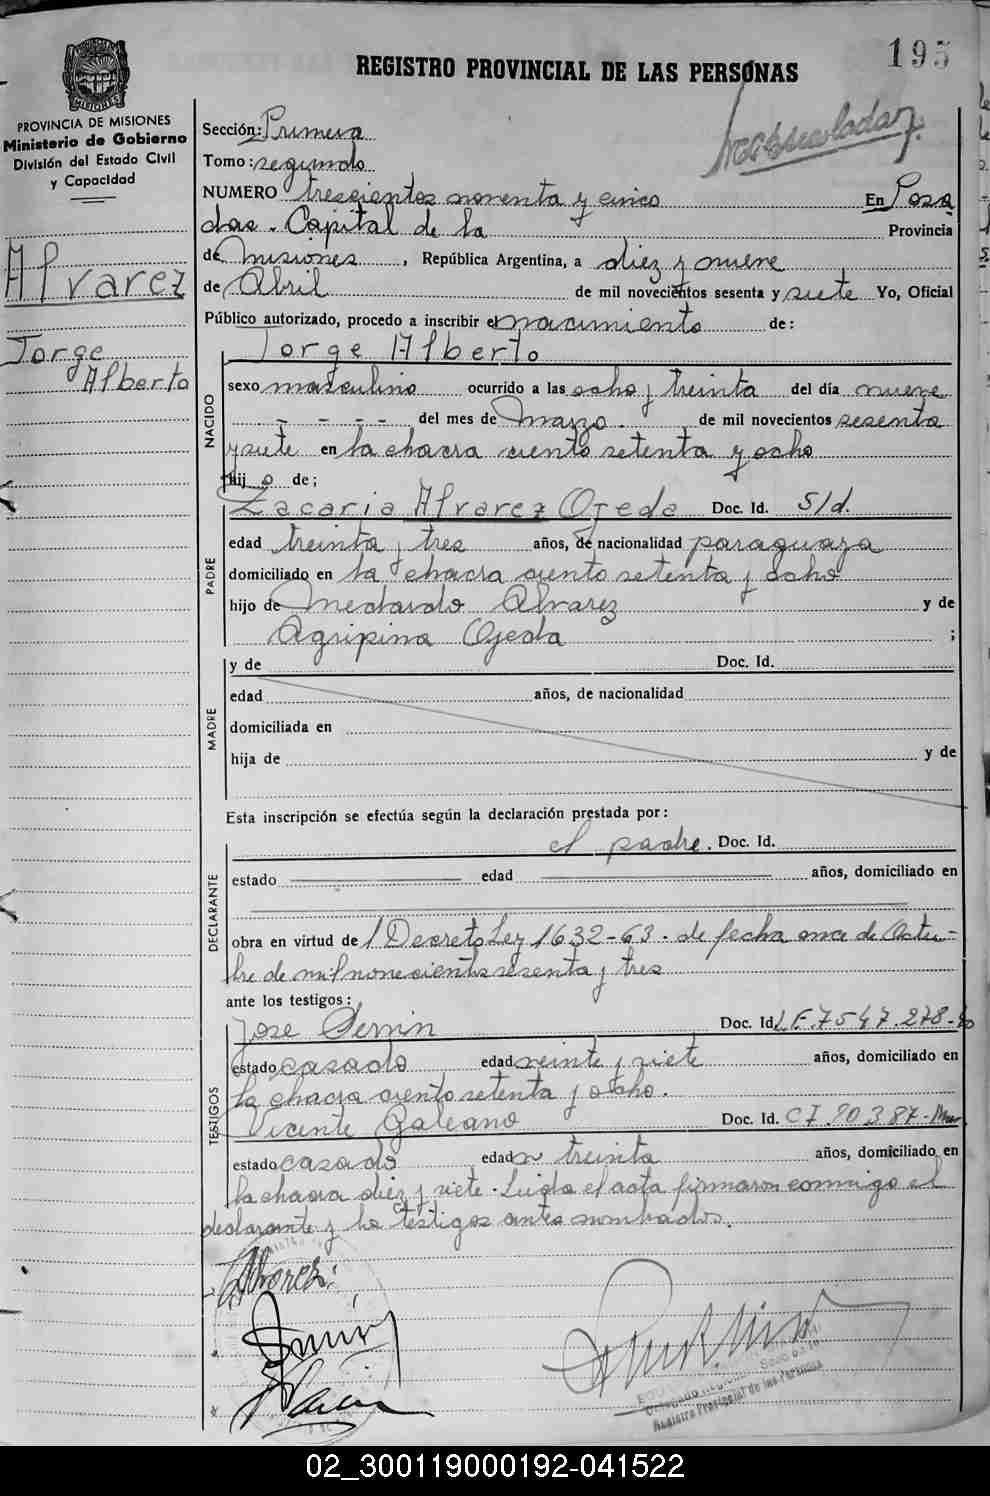 195
REGISTRO PROVINCIAL DE LAS PERSONAS
MISIONES
PROVINCIA DE MISIONES
Ministerio de Gobierno
División del Estado Civil
y Capacidad
Alvarez
Jorge
Alberto
Sección: Primera
Tomo: segundo
NUMERO trescientos noventa y cinco En Posa
das. Capital de la Provincia
de Misiones, República Argentina, a diez y nueve
de Abril de mil novecientos sesenta y siete Yo, Oficial
Público autorizado, procedo a inscribir el nacimiento de:
Jorge Alberto
NACIDO
sexo masculino ocurrido a las ocho y treinta del día nueve
- - - - - del mes de Marzo. de mil novecientos sesenta
y siete en la chacra ciento setenta y ocho
hijo de;
Zacaria Alvarez Ojeda Doc. Id. S/d.
PADRE
edad treinta y tres años, de nacionalidad paraguaya
domiciliado en la chacra ciento setenta y ocho
hijo de Medardo Alvarez y de
Agripina Ojeda ;
MADRE
y de Doc. Id.
edad años, de nacionalidad
domiciliada en
hija de y de
Esta inscripción se efectúa según la declaración prestada por:
el padre. Doc. Id.
DECLARANTE
estado edad años, domiciliado en
obra en virtud de / Decreto Ley 1632-63. de fecha once de Octu-
bre de mil novecientos sesenta y tres
ante los testigos:
TESTIGOS
Jose Doc. Id. L.E. 7547.278
estado casado edad veinte y siete años, domiciliado en
la chacra ciento setenta y ocho.
Vicente Galeano Doc. Id. CI. 20387
estado casado edad treinta años, domiciliado en
la chacra diez y siete. Leida el acta firmaron conmigo el
declarante y los testigos antes nombrados.
Alvarez
Registro Provincial de las Personas
02_300119000192-041522